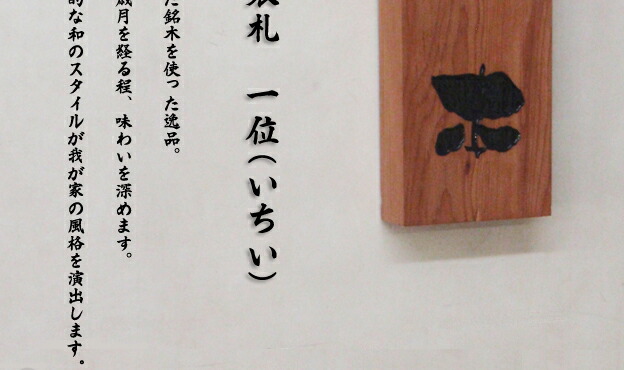 表札 一位(いちい)
銘木を使った逸品。
歳月を経る程、味わいを深めます。
的な和のスタイルが我が家の風格を演出します。